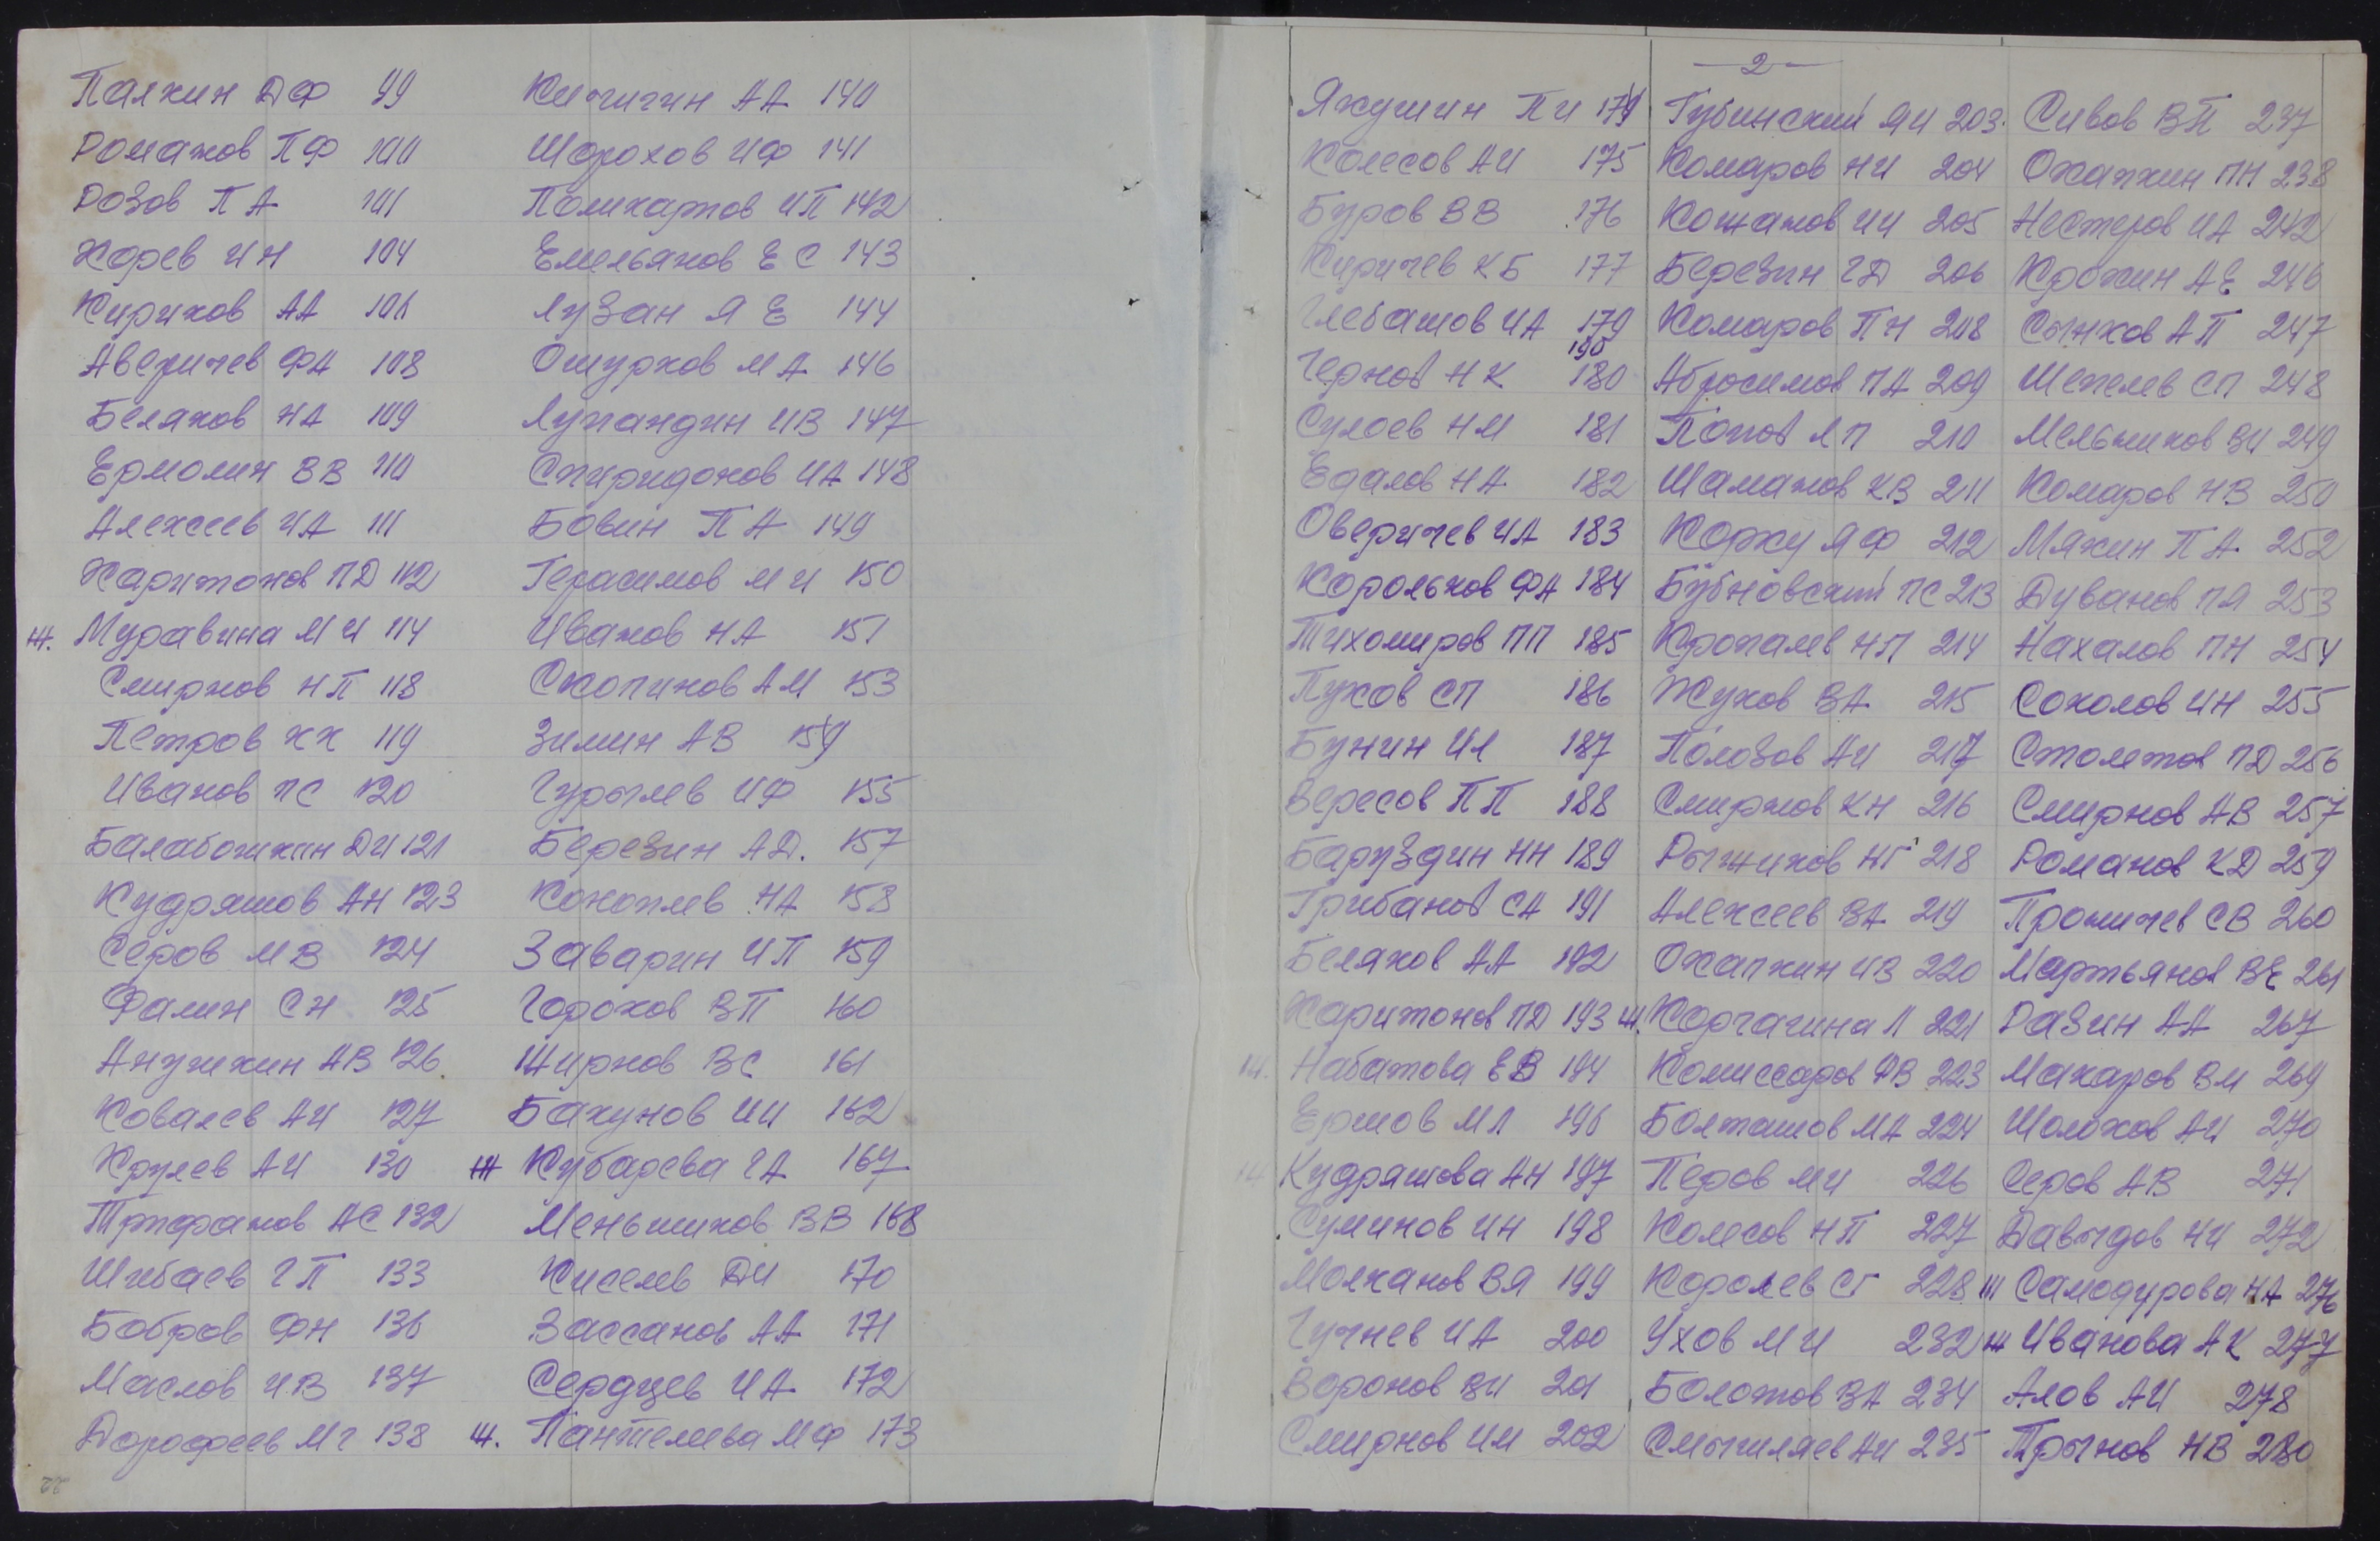 Палкин ДФ 99
Романов ПФ 100
Розов ПА 101
Хорев ИН 104
Кириков АА 106
Аверичев ФА 108
Беляков НА 109
Ермолин ВВ 110
Алексеев ИА 111
Харитонов ПД 112
Ж. Муравина МИ 114
Смирнов НП 118
Петров КК 119
Иванов ПС 120
Балабошкин ДИ 121
Кудряшов АН 123
Серов МВ 124
Фалин СН 125
Анушкин АВ 126
Ковалев АИ 127
Крулев АИ 130
Трифанов АС 132
Шибаев ГП 133
Бобров ФН 136
Маслов ИВ 137
Дорофеев МГ 138
Кичигин АА 140
Шорохов ИФ 141
Поликарпов ИП 142
Емельянов ЕС 143
Лузан ЯЕ 144
Ошурков МА 146
Лупандин ИВ 147
Спиридонов ИА 148
Бовин ПА 149
Герасимов МИ 150
Иванов НА 151
Скопинов АМ 153
Зимин АВ
Гурылев ИФ 155
Березин АД. 157
Коноплев НА 158
Заварин ИП 159
Горохов ВП 160
Жирнов ВС 161
Бакунов ИИ 162
Ж Кубарева ГА 167
Меньшиков ВВ 168
Киселев ДИ 170
Зассанов АА 171
Сердцев ИА 172
Ж. Пантелева МФ 173
2
Якушин ПИ 174
Колесов АИ 175
Буров ВВ 176
Киричев КБ 177
Глебашов ИА 179
190
Чернов НК 180
Сулоев НМ 181
Едалов НА 182
Оверичев ИА 183
Корольков ФА 184
Тихомиров ПП 185
Пухов СП 186
Бунин ИЛ 187
Вересов ПП 188
Баруздин НН 189
Грибанов СА 191
Беляков АА 192
Харитонов ПД 193
Ж. Набатова ЕВ 194
Ершов МЛ 196
Ж Кудряшова АН 197
Суминов ИН 198
Молканов ВЯ 199
Гучнев ИА 200
Воронов ВИ 201
Смирнов ИМ 202
Губинский ЯИ 203.
Комаров НИ 204
Кожанов ИИ 205
Березин ГД 206
Комаров ПН 208
Абросимов ПА 209
Попов ЛП 210
Шаманов КВ 211
Коржу ЯФ 212
Бубновский ПС 213
Кропалев НП 214
Жуков ВА 215
Полозов АИ 217
Смирнов КН 216
Рыжиков НГ 218
Алексеев ВА 219
Охапкин ИВ 220
Ж. Корчагина Л 221
Комиссаров ФВ 223
Болташов МА 224
Перов МИ 226
Колесов НП 227
Королев СГ 228
Ухов МИ 232
Болотов ВА 234
Смыгиляев АИ 235
Сивов ВП 237
Охапкин ПН 238
Нестеров ИА 242
Крошкин АЕ 246
Сынков АП 247
Шепелев СП 248
Мельников ВИ 249
Комаров НВ 250
Мякин ПА 252
Дуванов ПЯ 253
Нахалов ПН 254
Соколов ИН 255
Столетов ПД 256
Смирнов АВ 257
Романов КД 259
Проничев СВ 260
Мартьянов ВЕ 261
Разин АА 267
Макаров ВМ 269
Шолохов АИ 270
Серов АВ 271
Давыдов НИ 272
Ж Самодурова НА 276
Ж Иванова АК 277
Алов АИ 278
Трынов НВ 280